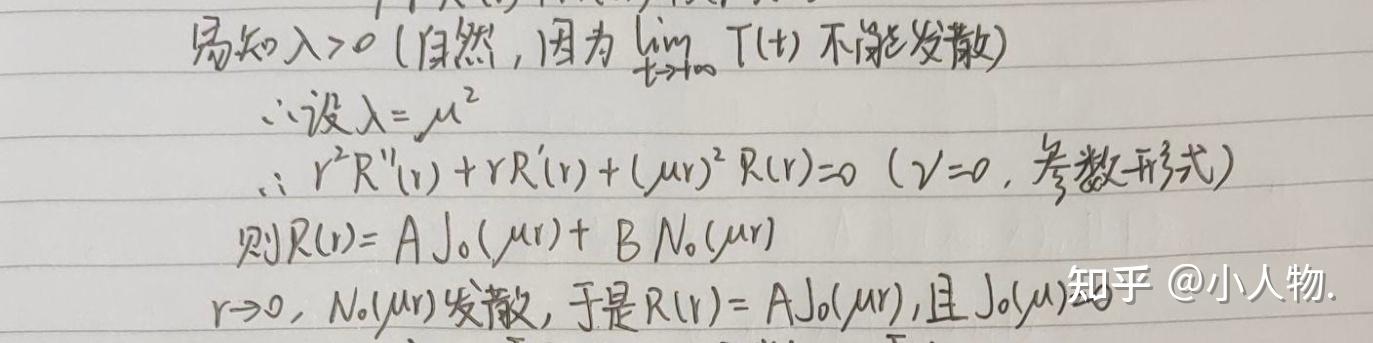 易知 λ>0 (自然, 因为 lim t→+∞ T(t) 不能发散)
∴设 λ=μ²
∴ r²R''(r)+rR'(r)+(μr)²R(r)=0 (ν=0, 参数形式)
则R(r)= A J₀(μr)+ B N₀(μr)
r→0, N₀(μr)发散, 于是R(r)= AJ₀(μr), 且 J₀(μ)=0
知乎 @小人物.